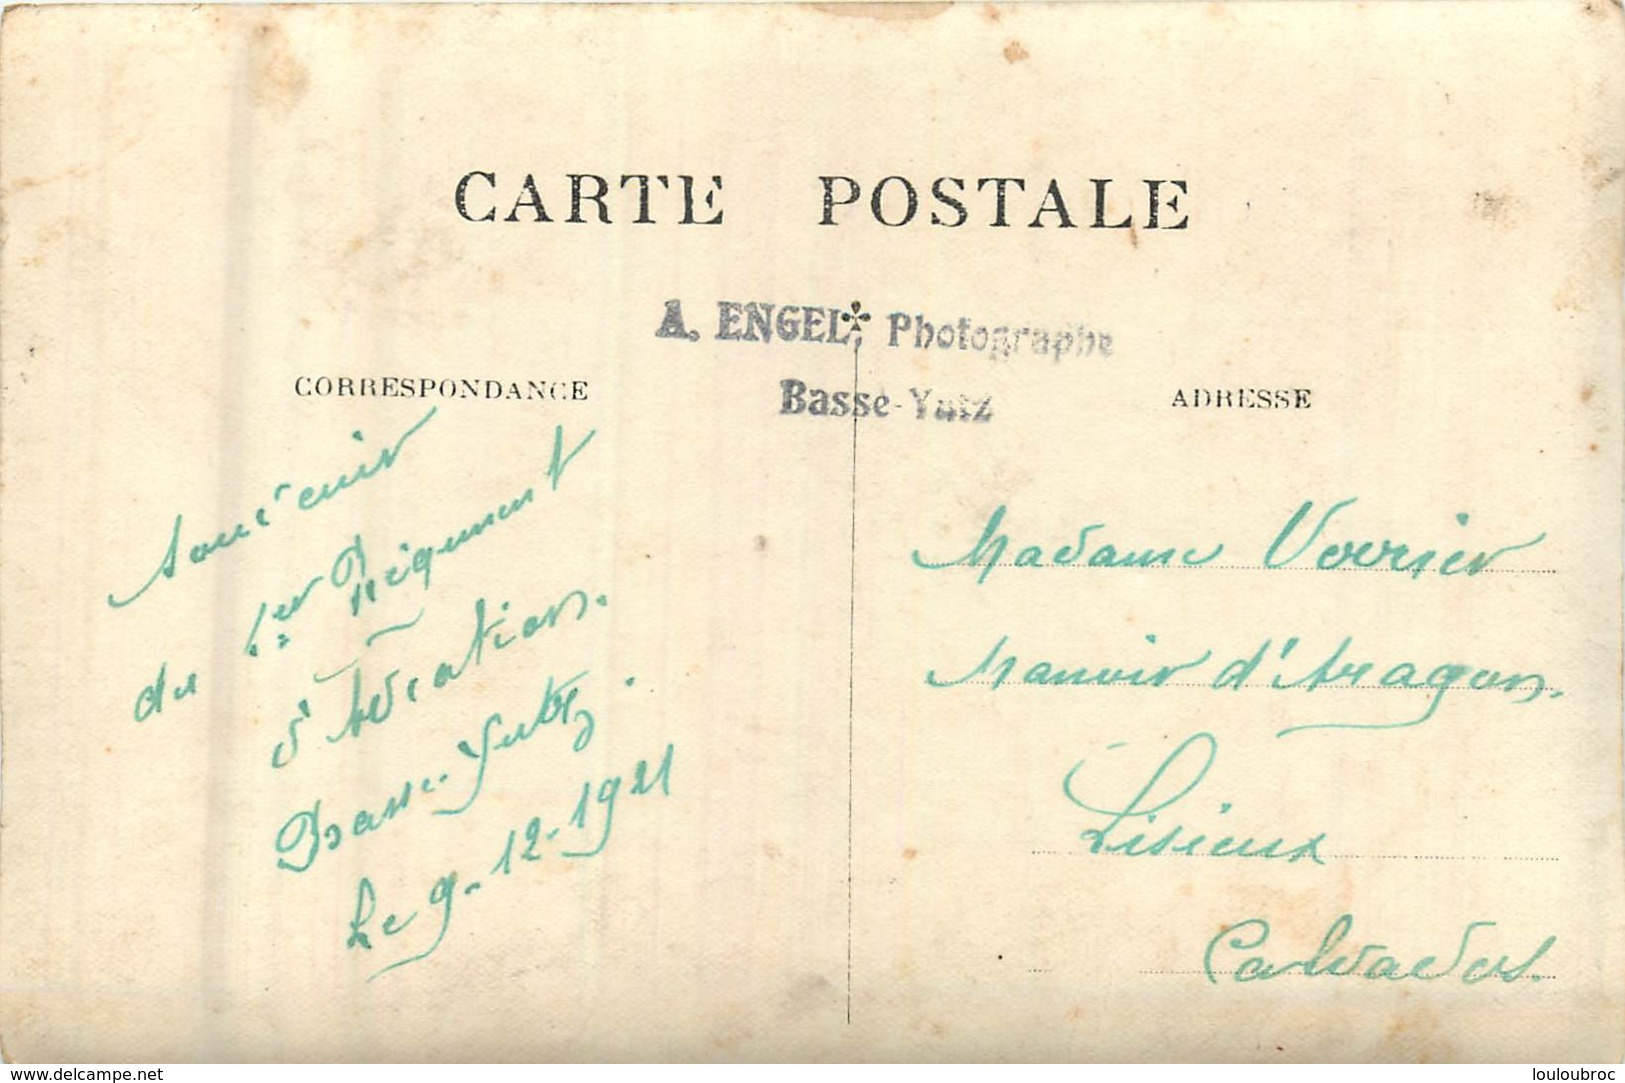 CARTE POSTALE
A. ENGEL, Photographe
Basse-Yutz
CORRESPONDANCE
ADRESSE
Souvenir
du 1.er Régiment
d'Aviation.
Basse-Yutz.
Le 9-12-1921
Madame
Manoir d'Aragon.
Lisieux
Calvados.
www.delcampe.net
louloubroc